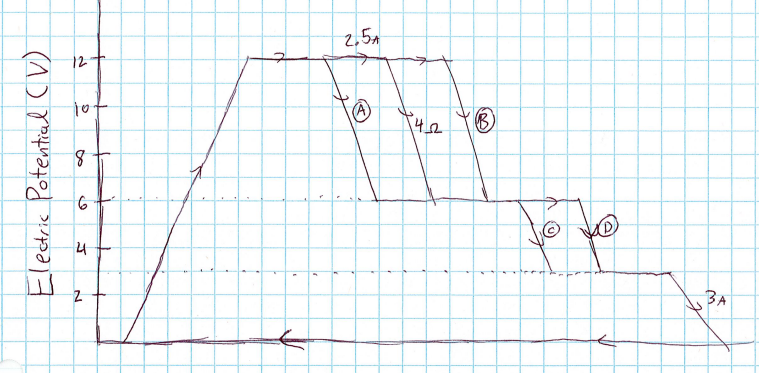 Electric Potential (V)
2.5A
12
10
8
6
4
2
A
4Ω
B
C
D
3A